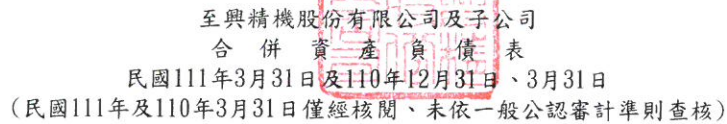 至興精機股份有限公司及子公司
合併資產負債表
民國111年3月31日及110年12月31日、3月31日
(民國111年及110年3月31日僅經核閱、未依一般公認審計準則查核)